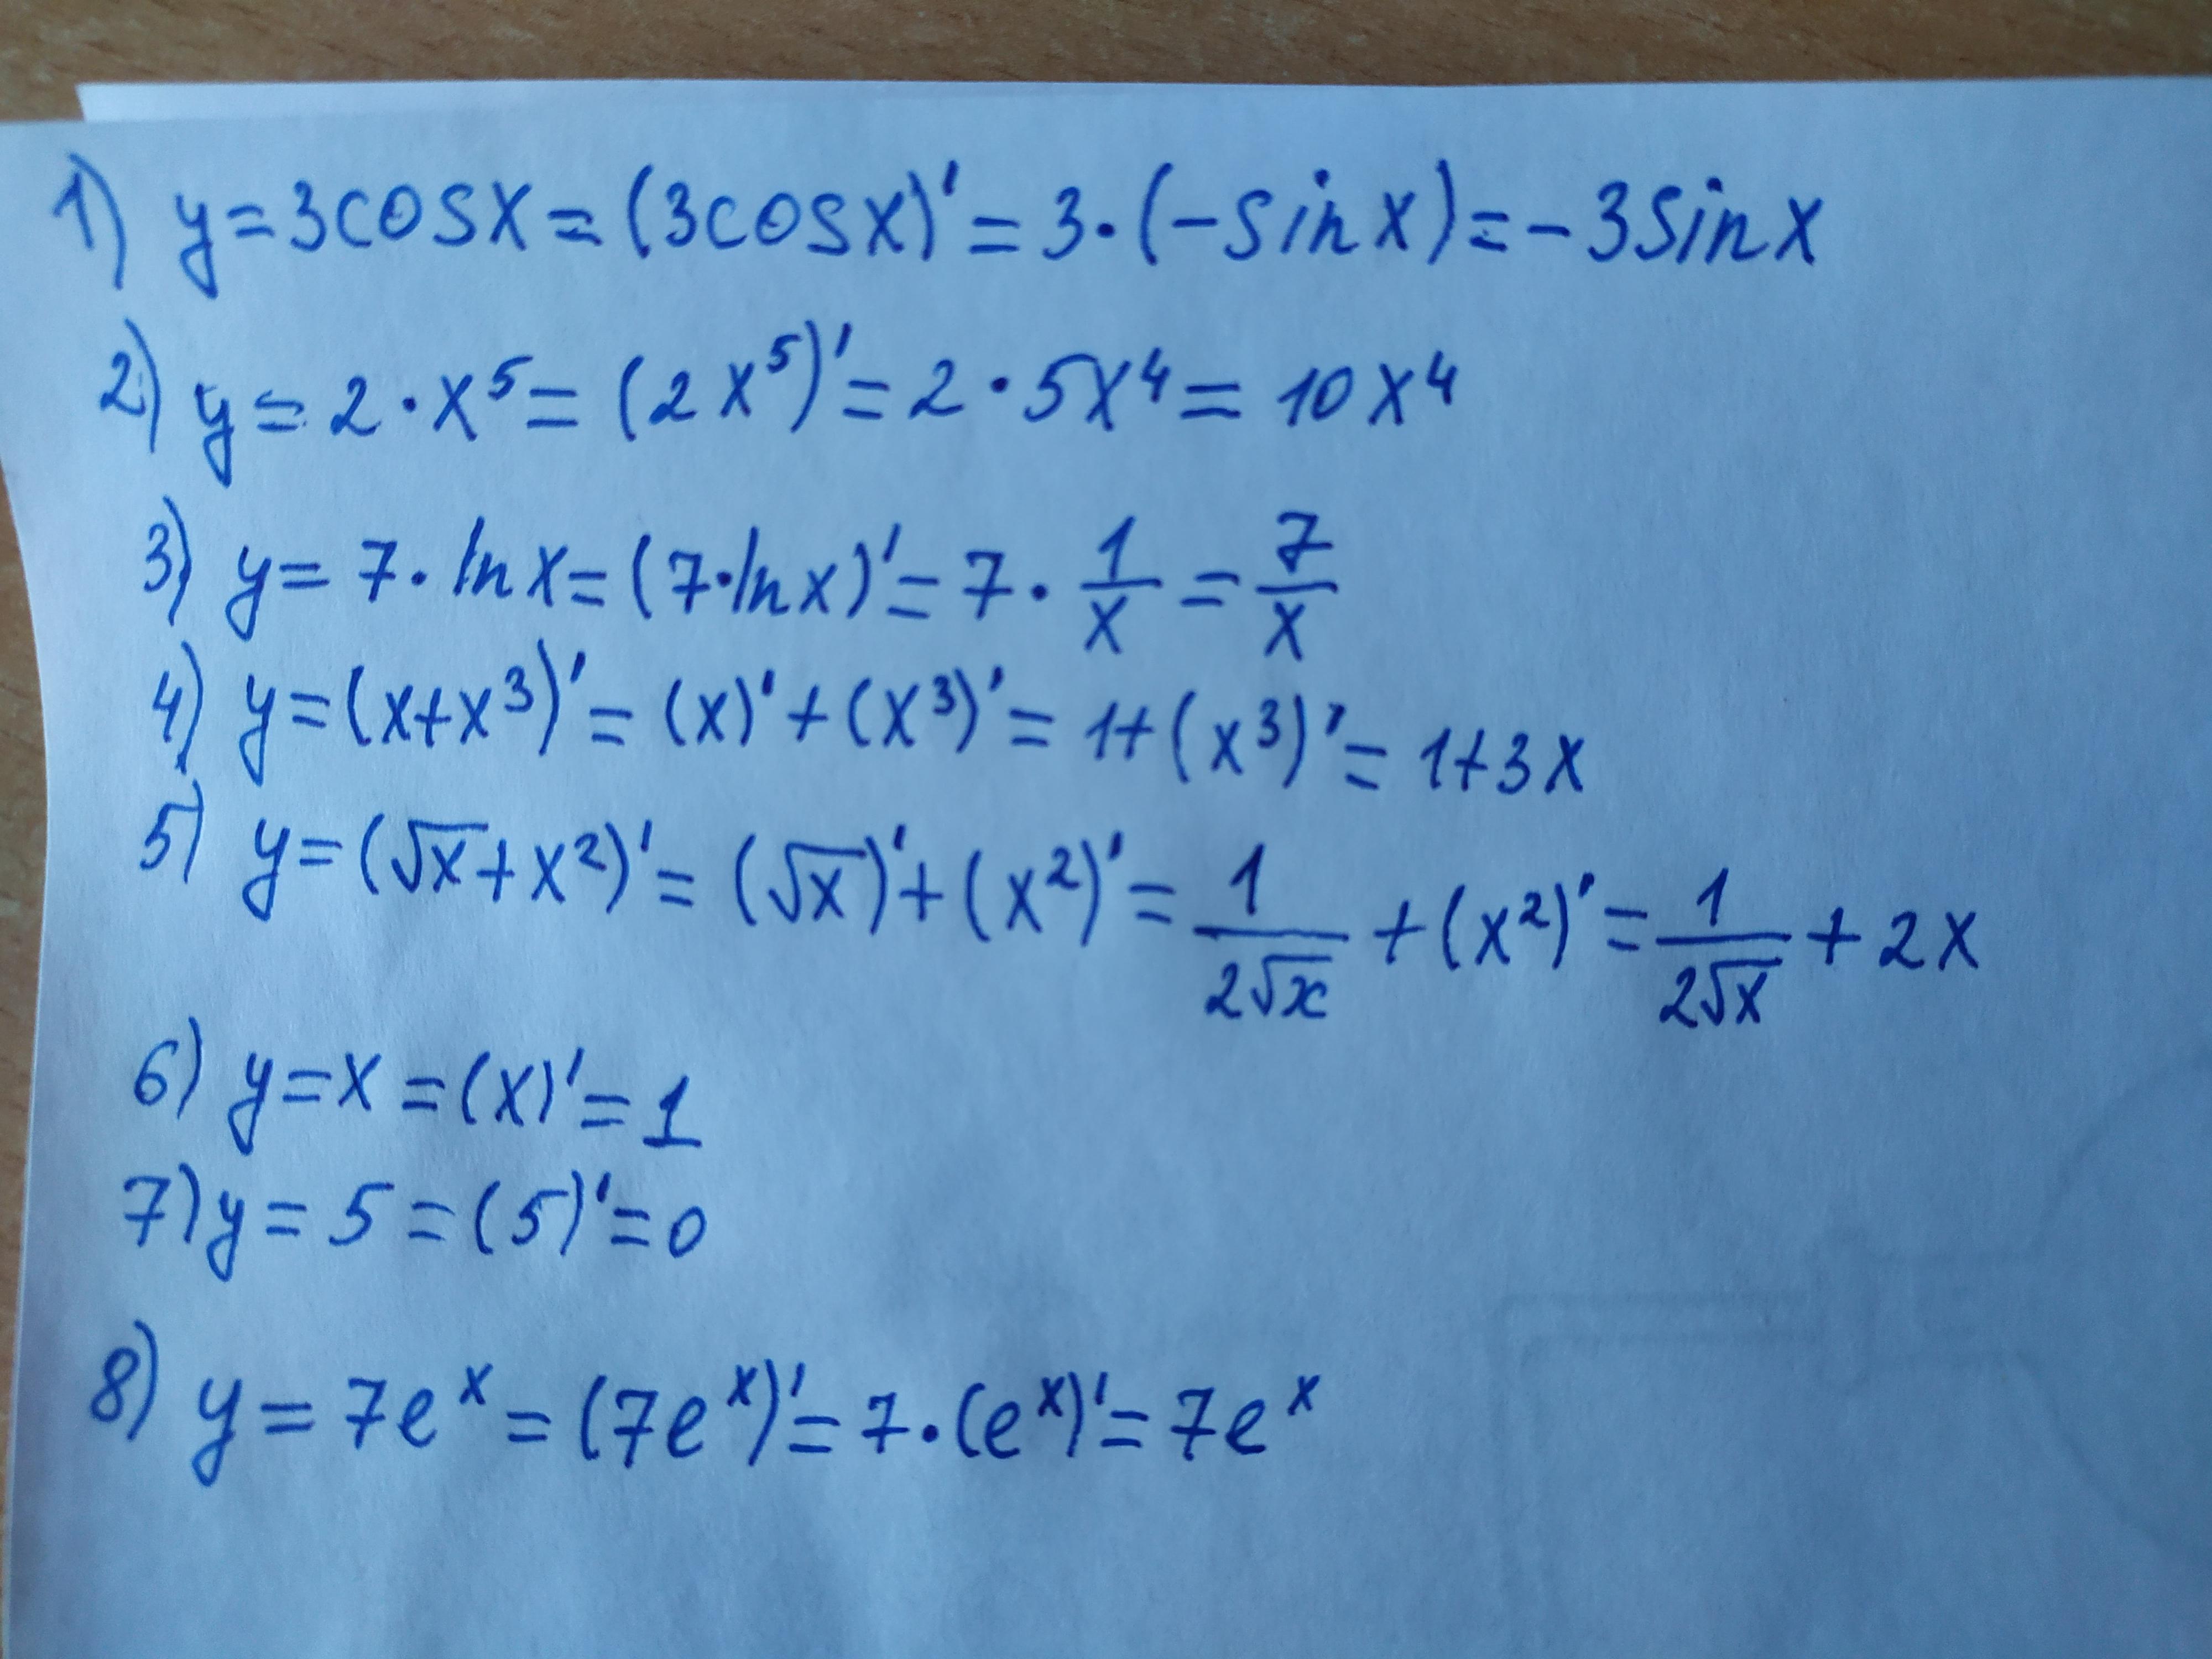 1) y=3cosx=(3cosx)'=3·(-sinx)=-3sinx
2) y=2·x⁵=(2x⁵)'=2·5x⁴=10x⁴
3) y=7·lnx=(7·lnx)'=7·1/x=7/x
4) y=(x+x³)'=(x)'+(x³)'=1+(x³)'=1+3x
5) y=(√x+x²)'=(√x)'+(x²)'=1/(2√x)+(x²)'=1/(2√x)+2x
6) y=x=(x)'=1
7) y=5=(5)'=0
8) y=7eˣ=(7eˣ)'=7·(eˣ)'=7eˣ